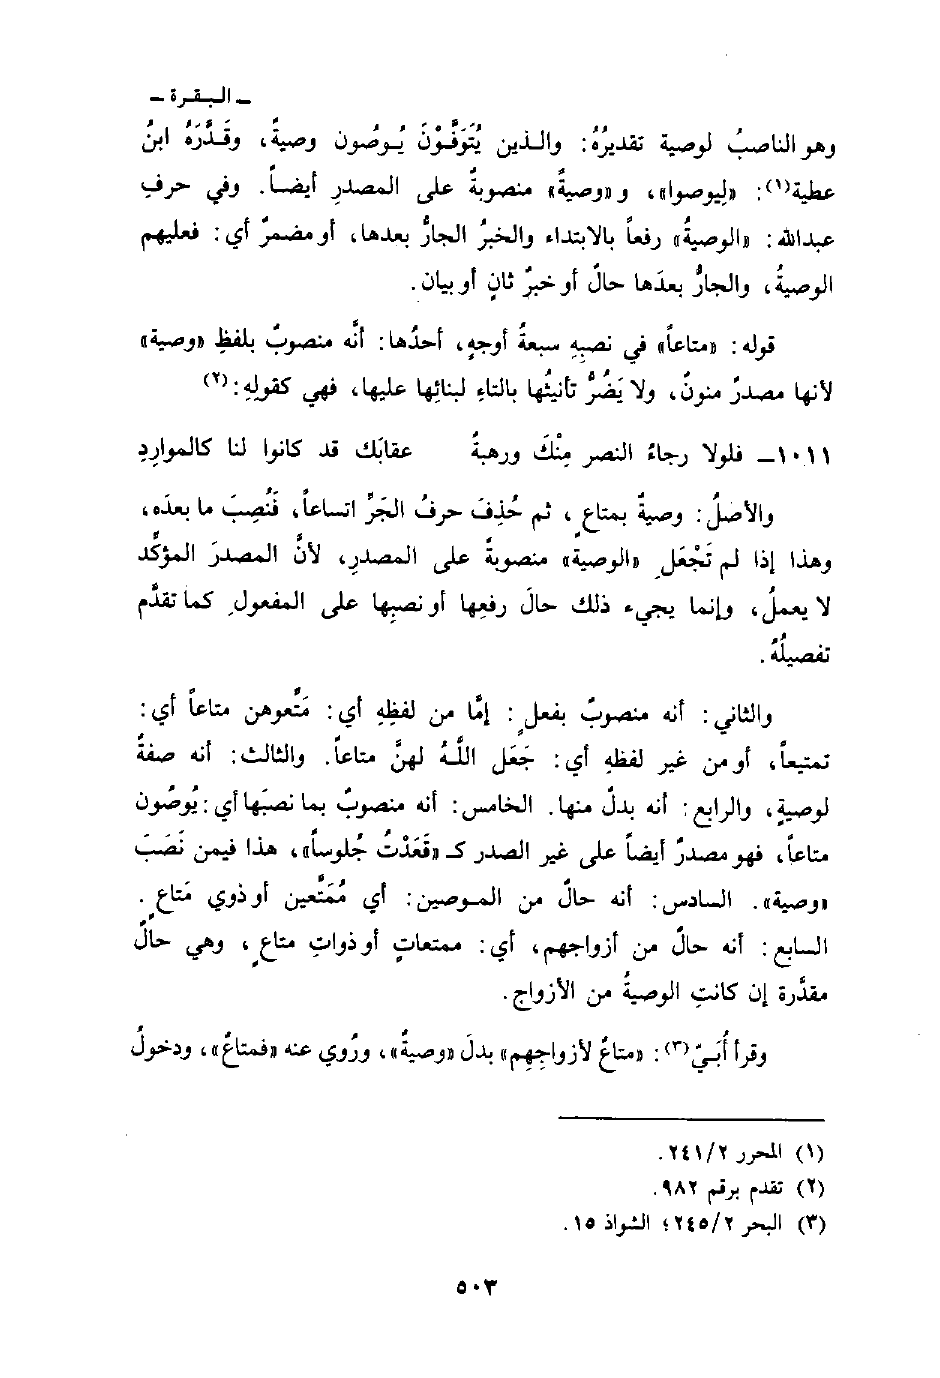 ـ البقرة ـ
وهو الناصبُ لوصية تقديرُهُ: والذين يُتَوَفَّوْنَ يُوصُون وصيةً، وقَدَّرَهُ ابنُ
عطية(١): «لِيوصوا»، و«وصيةً» منصوبةٌ على المصدرِ أيضاً. وفي حرفِ
عبدالله: «الوصيةُ» رفعاً بالابتداء والخبرُ الجارُّ بعدها، أو مضمرٌ أي: فعليهم
الوصيةُ، والجارُّ بعدَها حالٌ أو خبرٌ ثانٍ أو بيان.
قوله: «متاعاً» في نصبِهِ سبعةُ أوجهٍ، أحدُها: أنَّه منصوبٌ بلفظِ «وصية»
لأنها مصدرٌ منونٌ، ولا يَضُرُّ تأنيثُها بالتاءِ لبنائِها عليها، فهي كقولِهِ:(٢)
١٠١١ـ فلولا رجاءُ النصر مِنْكَ ورهبةٌ عقابَك قد كانوا لنا كالموارِدِ
والأصلُ: وصيةٌ بمتاعٍ، ثم حُذِفَ حرفُ الجَرِّ اتساعاً، فَنُصِبَ ما بعدَه،
وهذا إذا لم تَجْعَلِ «الوصية» منصوبةً على المصدرِ، لأنَّ المصدرَ المؤكِّد
لا يعملُ، وإنما يجيء ذلك حالَ رفعِها أو نصبِها على المفعولِ كما تقدَّم
تفصيلُهُ.
والثاني: أنه منصوبٌ بفعلٍ: إمَّا من لفظِهِ أي: مَتِّعوهن متاعاً أي:
تمتيعاً، أو من غير لفظهِ أي: جَعَل اللَّهُ لهنَّ متاعاً. والثالث: أنه صفةٌ
لوصيةٍ، والرابع: أنه بدلٌ منها. الخامس: أنه منصوبٌ بما نصبَها أي: يُوصُون
متاعاً، فهو مصدرٌ أيضاً على غير الصدر كـ «قَعَدْتُ جُلوساً»، هذا فيمن نَصَبَ
«وصية». السادس: أنه حالٌ من الموصين: أي مُمَتَّعين أو ذوي مَتاعٍ.
السابع: أنه حالٌ من أزواجهم، أي: ممتعاتٍ أو ذواتِ متاعٍ، وهي حالٌ
مقدَّرة إن كانتِ الوصيةُ من الأزواج.
وقرأ أُبَيّ(٣): «متاعٌ لأزواجِهِم» بدلَ «وصيةً»، ورُوي عنه «فمتاعٌ»، ودخولُ
(١) المحرر ٢٤١/٢.
(٢) تقدم برقم ٩٨٢.
(٣) البحر ٢٤٥/٢؛ الشواذ ١٥.
٥٠٣